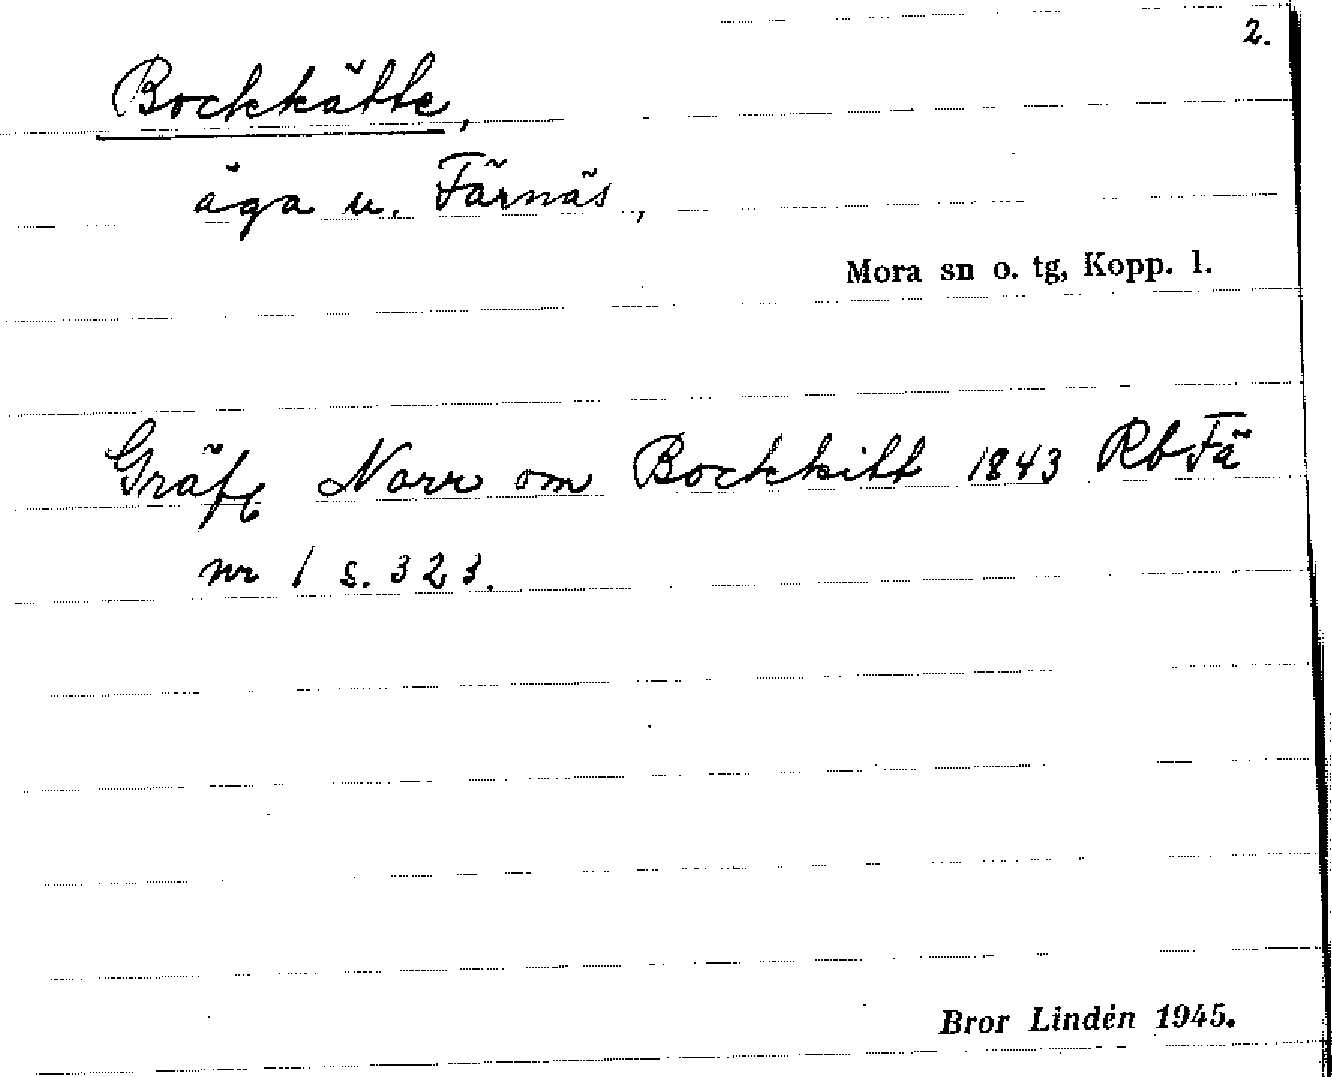 2.
Bockkätte,
äga u. Färnäs,
Mora sn o. tg, Kopp. l.
Gräfz Norr om Bockkitt 1843 RbFä
nr 1 s. 323.
Bror Lindén 1945.